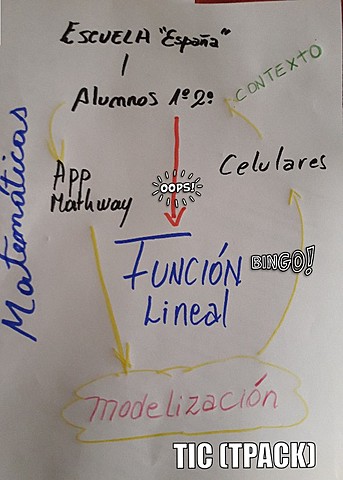 ESCUELA "España"
Alumnos 1º 2º
CONTEXTO
Matemáticas
App
Mathway
OOPS!
Celulares
FUNCIÓN
Lineal
BINGO!
modelización
TIC (TPACK)